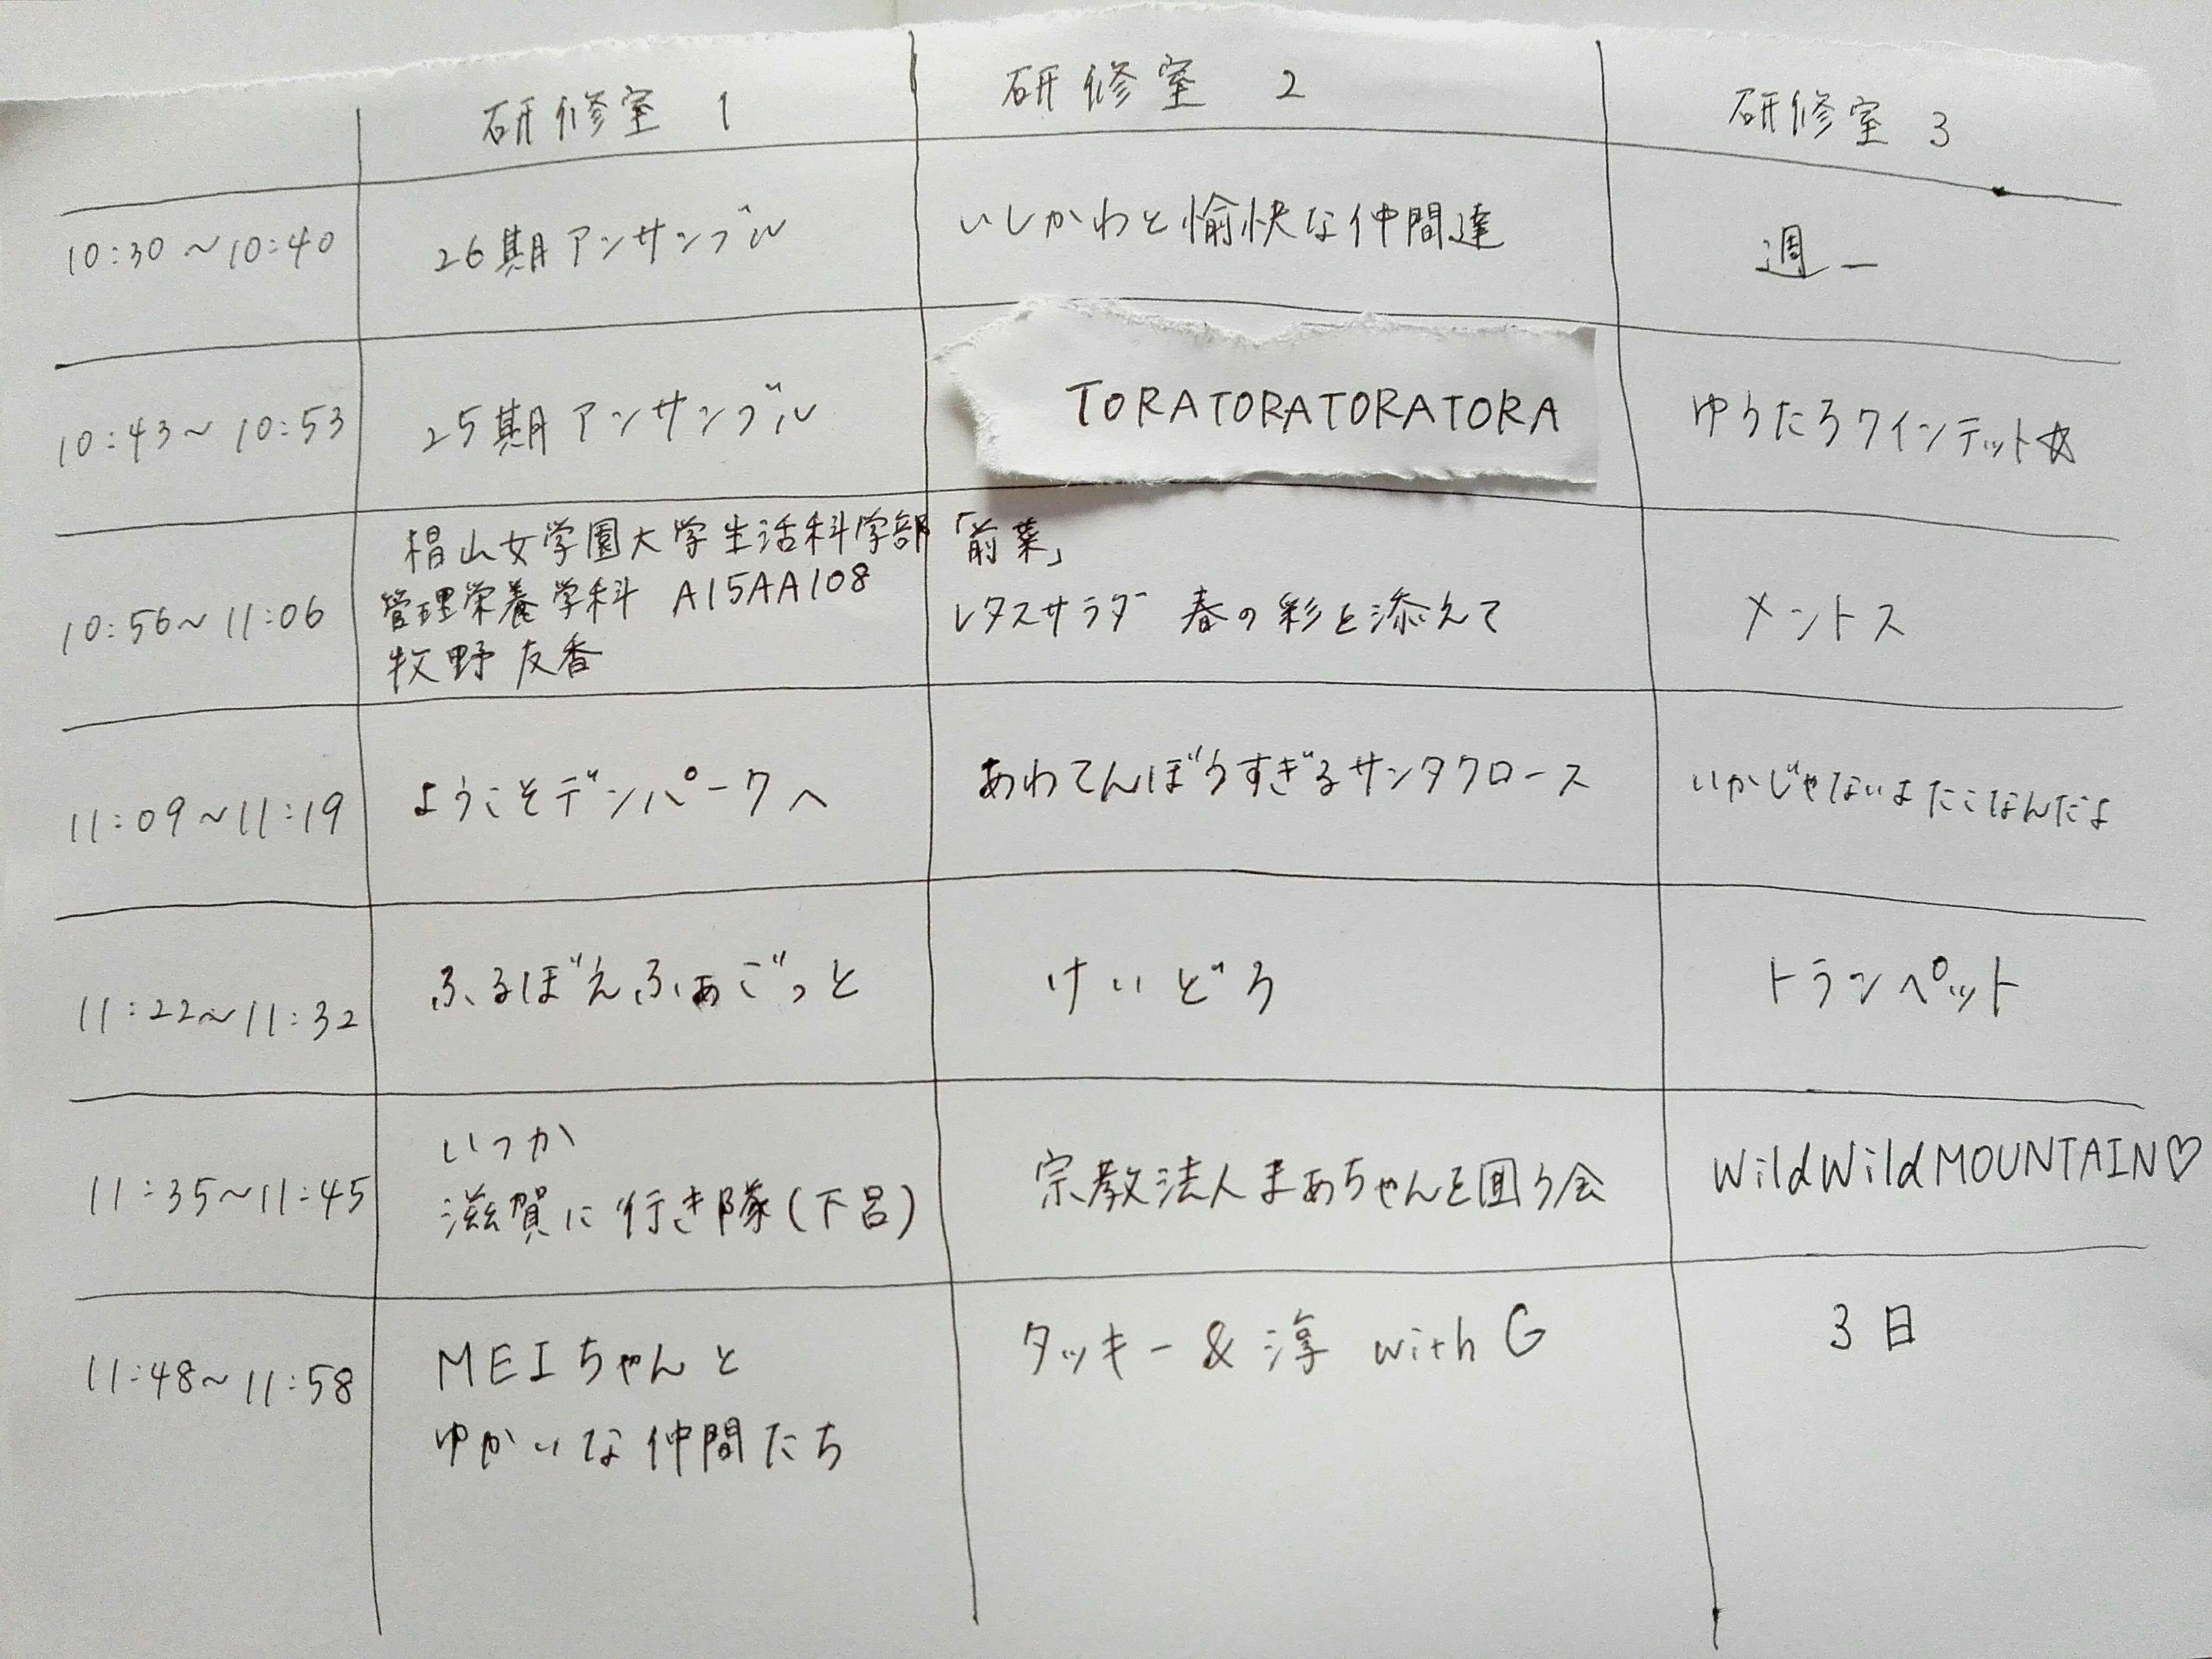 研修室 1
研修室 2
研修室 3
10:30～10:40
26期アンサンブル
いしかわと愉快な仲間達
週一
10:43～10:53
25期アンサンブル
TORATORATORATORA
ゆうたろクインテット☆
10:56～11:06
椙山女学園大学生活科学部
管理栄養学科 A15AA108
牧野友香
「前菜」
レタスサラダ 春の彩を添えて
メントス
11:09～11:19
ようこそデンパークへ
あわてんぼうすぎるサンタクロース
いかじゃないよたこなんだよ
11:22～11:32
ふるぼえふぁごっと
けいどろ
トランペット
11:35～11:45
いつか
滋賀に行き隊(下呂)
宗教法人まあちゃんを囲う会
WildWildMOUNTAIN♡
11:48～11:58
MEIちゃんと
ゆかいな仲間たち
タッキー&淳 with G
3日